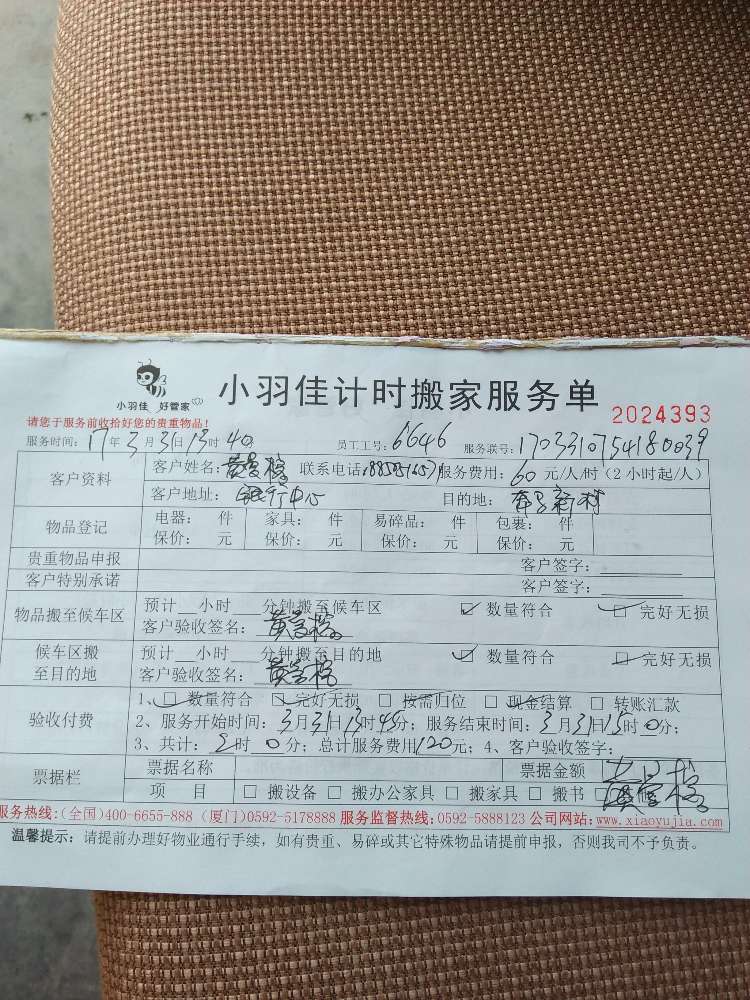 小羽佳 好管家
小羽佳计时搬家服务单
2024393
请您于服务前收拾好您的贵重物品!
服务时间: 17年3月31日13时40 员工工号: 6646 服务联号: 1703310754180039
客户资料
客户姓名: 联系电话 服务费用: 60元/人/时(2小时起/人)
客户地址: 银行中心 目的地:
物品登记
电器: 件 家具: 件 易碎品: 件 包裹: 件
保价: 元 保价: 元 保价: 元 保价: 元
贵重物品申报 客户签字:
客户特别承诺 客户签字:
物品搬至候车区
预计__小时__分钟搬至候车区 ☑ 数量符合 ☑ 完好无损
客户验收签名:
候车区搬至目的地
预计 小时 分钟搬至目的地 ☑ 数量符合 ☑ 完好无损
客户验收签名:
验收付费
1、□ 数量符合 □ 完好无损 □ 按需归位 □ 现金结算 □ 转账汇款
2、服务开始时间: 3月31日13时45分; 服务结束时间: 3月31日15时0分;
3、共计: 2时0分; 总计服务费用120元; 4、客户验收签字:
票据栏
票据名称 票据金额
项 目 □ 搬设备 □ 搬办公家具 □ 搬家具 □ 搬书
服务热线:(全国)400-6655-888 (厦门)0592-5178888 服务监督热线: 0592-5888123 公司网站: www.xiaoyujia.com
温馨提示: 请提前办理好物业通行手续,如有贵重、易碎或其它特殊物品请提前申报,否则我司不予负责。